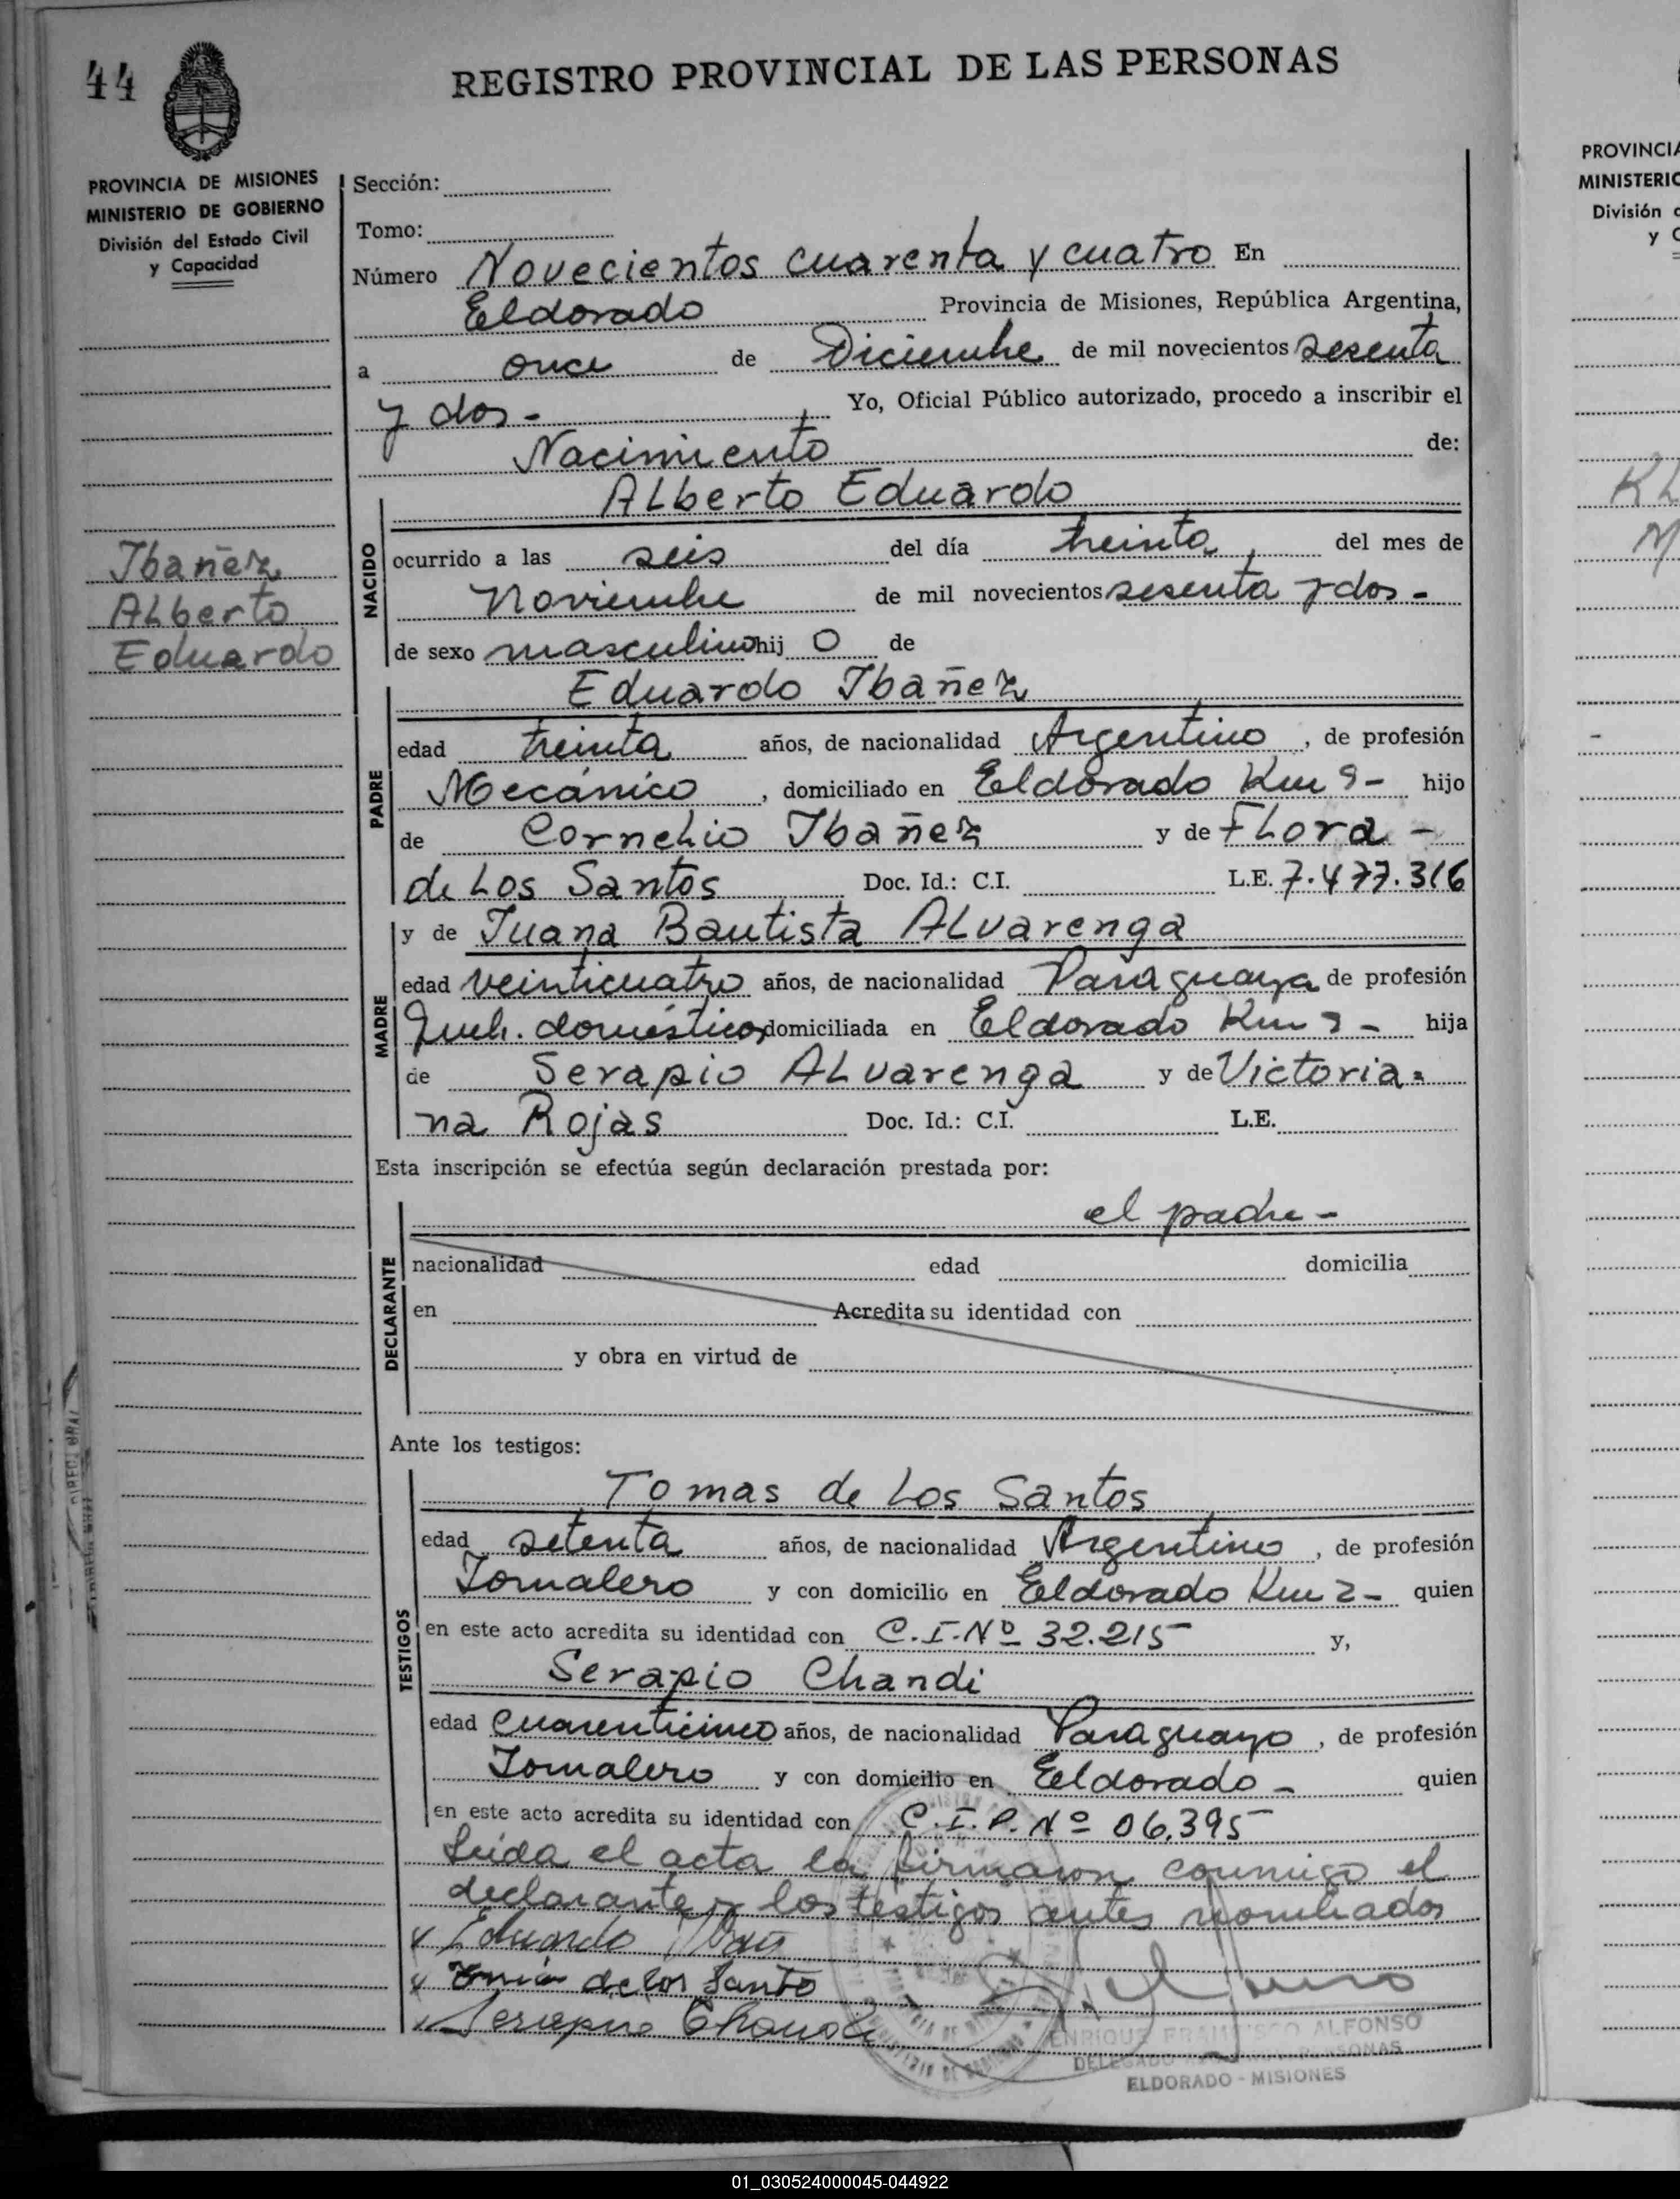 44
REGISTRO PROVINCIAL DE LAS PERSONAS
PROVINCIA DE MISIONES
MINISTERIO DE GOBIERNO
División del Estado Civil
y Capacidad
Ibañez
Alberto
Eduardo
Sección:
Tomo:
Número Novecientos cuarenta y cuatro En
Eldorado Provincia de Misiones, República Argentina,
a once de Diciembre de mil novecientos sesenta
y dos - Yo, Oficial Público autorizado, procedo a inscribir el
Nacimiento de:
NACIDO
Alberto Eduardo
ocurrido a las seis del día treinta del mes de
Noviembre de mil novecientos sesenta y dos -
de sexo masculino hij o de
PADRE
Eduardo Ibañez
edad treinta años, de nacionalidad Argentino, de profesión
Mecánico, domiciliado en Eldorado Km 9 - hijo
de Cornelio Ibañez y de Flora -
de Los Santos Doc. Id.: C.I. L.E. 7.477.316
MADRE
y de Juana Bautista Alvarenga
edad veinticuatro años, de nacionalidad Paraguaya de profesión
Queh. domésticos domiciliada en Eldorado Km 9 - hija
de Serapio Alvarenga y de Victoria=
na Rojas Doc. Id.: C.I. L.E.
Esta inscripción se efectúa según declaración prestada por:
DECLARANTE
el padre -
nacionalidad edad domicilia
en Acredita su identidad con
y obra en virtud de
Ante los testigos:
TESTIGOS
Tomas de Los Santos
edad setenta años, de nacionalidad Argentino, de profesión
Jornalero y con domicilio en Eldorado Km 2 - quien
en este acto acredita su identidad con C.I. Nº 32.215 y,
Serapio Chandi
edad cuarenticinco años, de nacionalidad Paraguayo, de profesión
Jornalero y con domicilio en Eldorado - quien
en este acto acredita su identidad con C.I.P. Nº 06.395
Leida el acta la firmaron conmigo el
declarante y los testigos antes nombrados
Eduardo
de los Santo
Serapio Chandi
ENRIQUE FRANCISCO ALFONSO
DELEGADO PERSONAS
ELDORADO - MISIONES
PROVINCIA
MINISTERIO
División
y
01_030524000045-044922